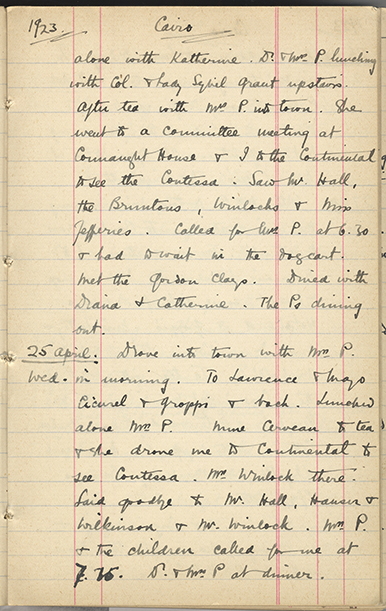 1923. Cairo
alone with Katherine. Dr. & Mrs P. lunching
with Col. & Lady Sybil Grant upstairs.
After tea with Mrs P. into town. She
went to a committee meeting at
Connaught House & I to the Continental
to see the Contessa. Saw Mr. Hall,
the Bruntons, Winlocks & Miss
Jefferies. Called for Mrs P. at 6.30
& had to wait in the Dogcart.
Met the Gordon Clays. Dined with
Diana & Catherine. The Ps dining
out.
25 April. Drove into town with Mrs P.
Wed. in morning. To Lawrence & Mayo
Cicurel & Groppi & back. Lunched
alone Mrs P. Mme Cerveau to tea
& she drove me to Continental to
see Contessa. Mrs Winlock there.
Said goodbye to Mr. Hall, Hauser &
Wilkinson & Mr. Winlock. Mrs P.
& the children called for me at
7.15. D. & Mrs P at dinner.